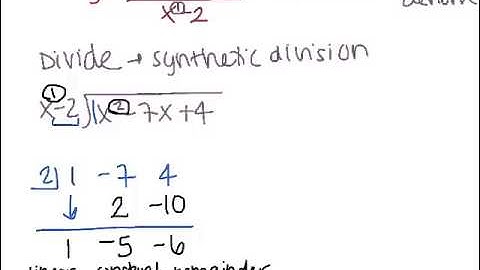 x^① - 2
Divide → synthetic division
x^① - 2 ⟌ 1x^② - 7x + 4
2⌋ 1 -7 4
↓ 2 -10
1 -5 -6
constant remainder